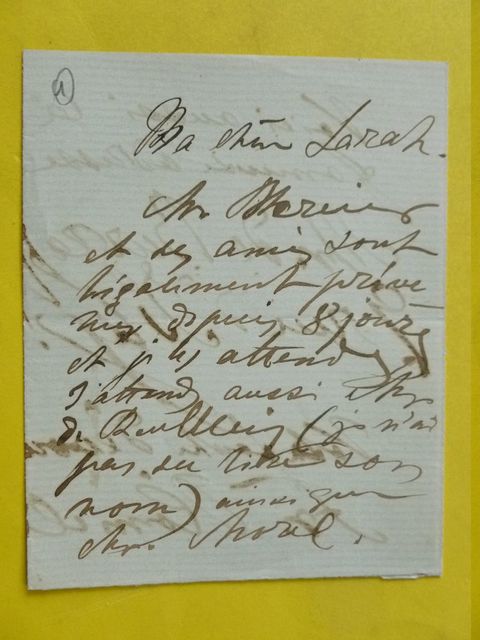 1
Ma chère Sarah.
Mr.
et des amis sont
légalement préve
nus depuis 8 jours
et je les attends
J'attends aussi Mr
de (je n'ai
pas su lire son
nom) ainsi que
Mr. Morel.